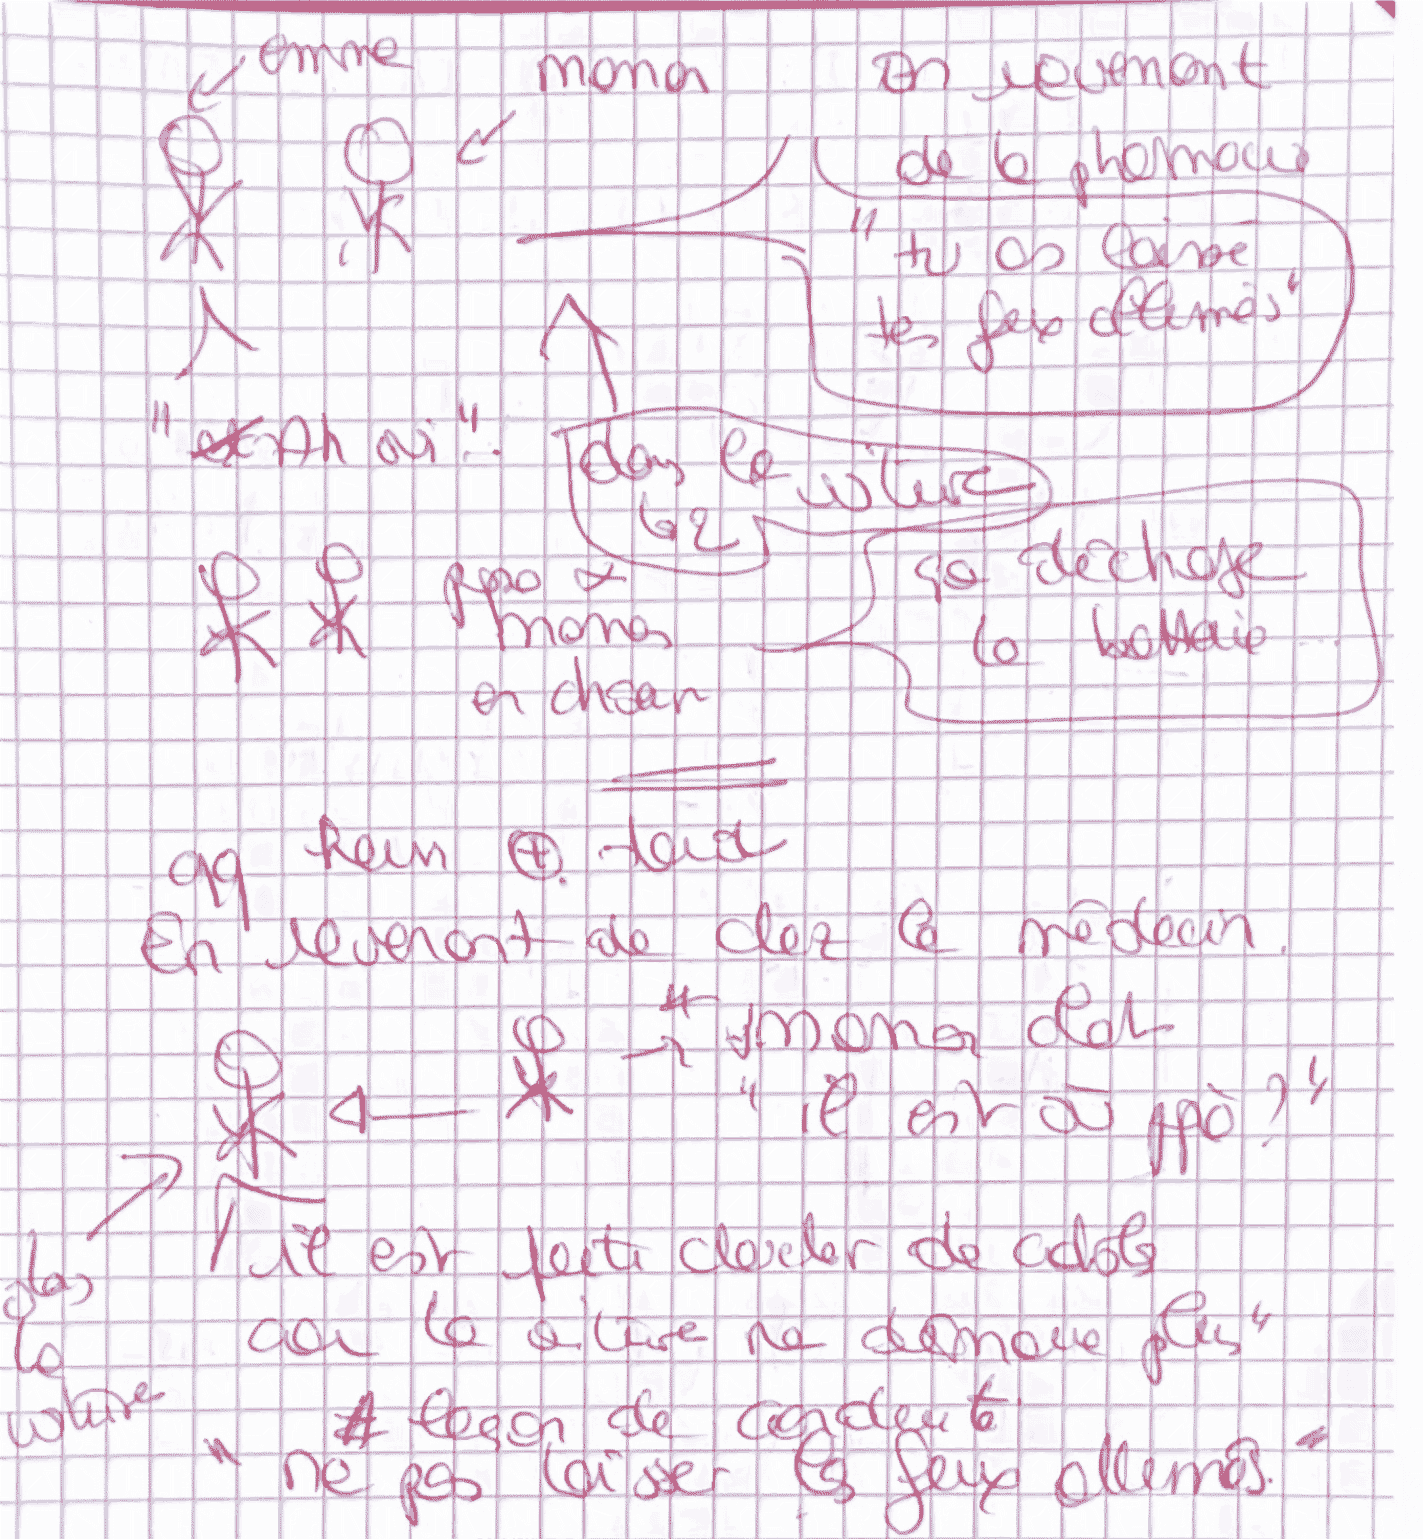 maman
En revenant
de la pharmacie
"tu as laissé
tes feux allumés"
"Ah oui"
dans la voiture
ça décharge
la batterie ...
papa &
maman
en chœur
qq heures ⊕ tard
En revenant de chez le médecin.
maman
"il est où papa ?"
il est parti chercher de
car la voiture ne démarre plus"
dans
la
voiture
leçon de conduite
"ne pas laisser les feux allumés."